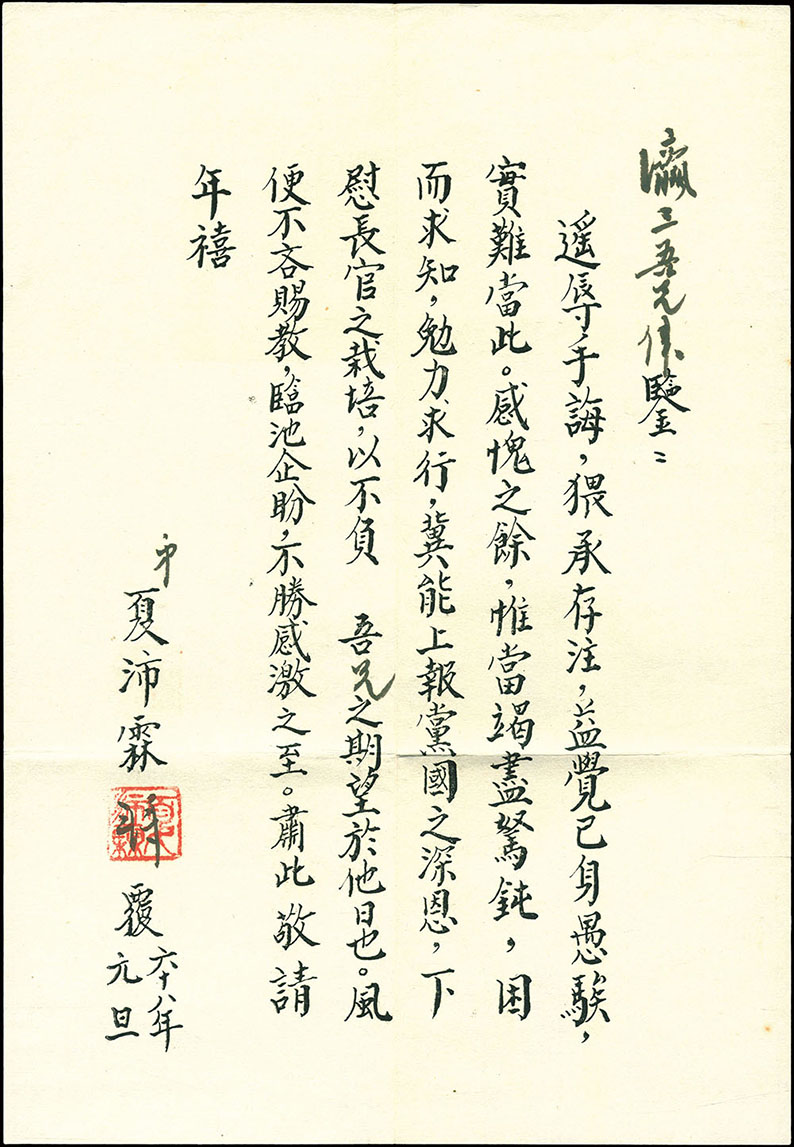 瀛三吾兄偉鑒：
遥辱手誨，猥承存注，益覺己身愚騃，
實難當此。感愧之餘，惟當竭盡駑鈍，困
而求知，勉力求行，冀能上報黨國之深恩，下
慰長官之栽培，以不負　吾兄之期望於他日也。風
便不吝賜教，臨池企盼，不勝感激之至。肅此敬請
年禧
弟夏沛霖拜覆
六十八年
元旦